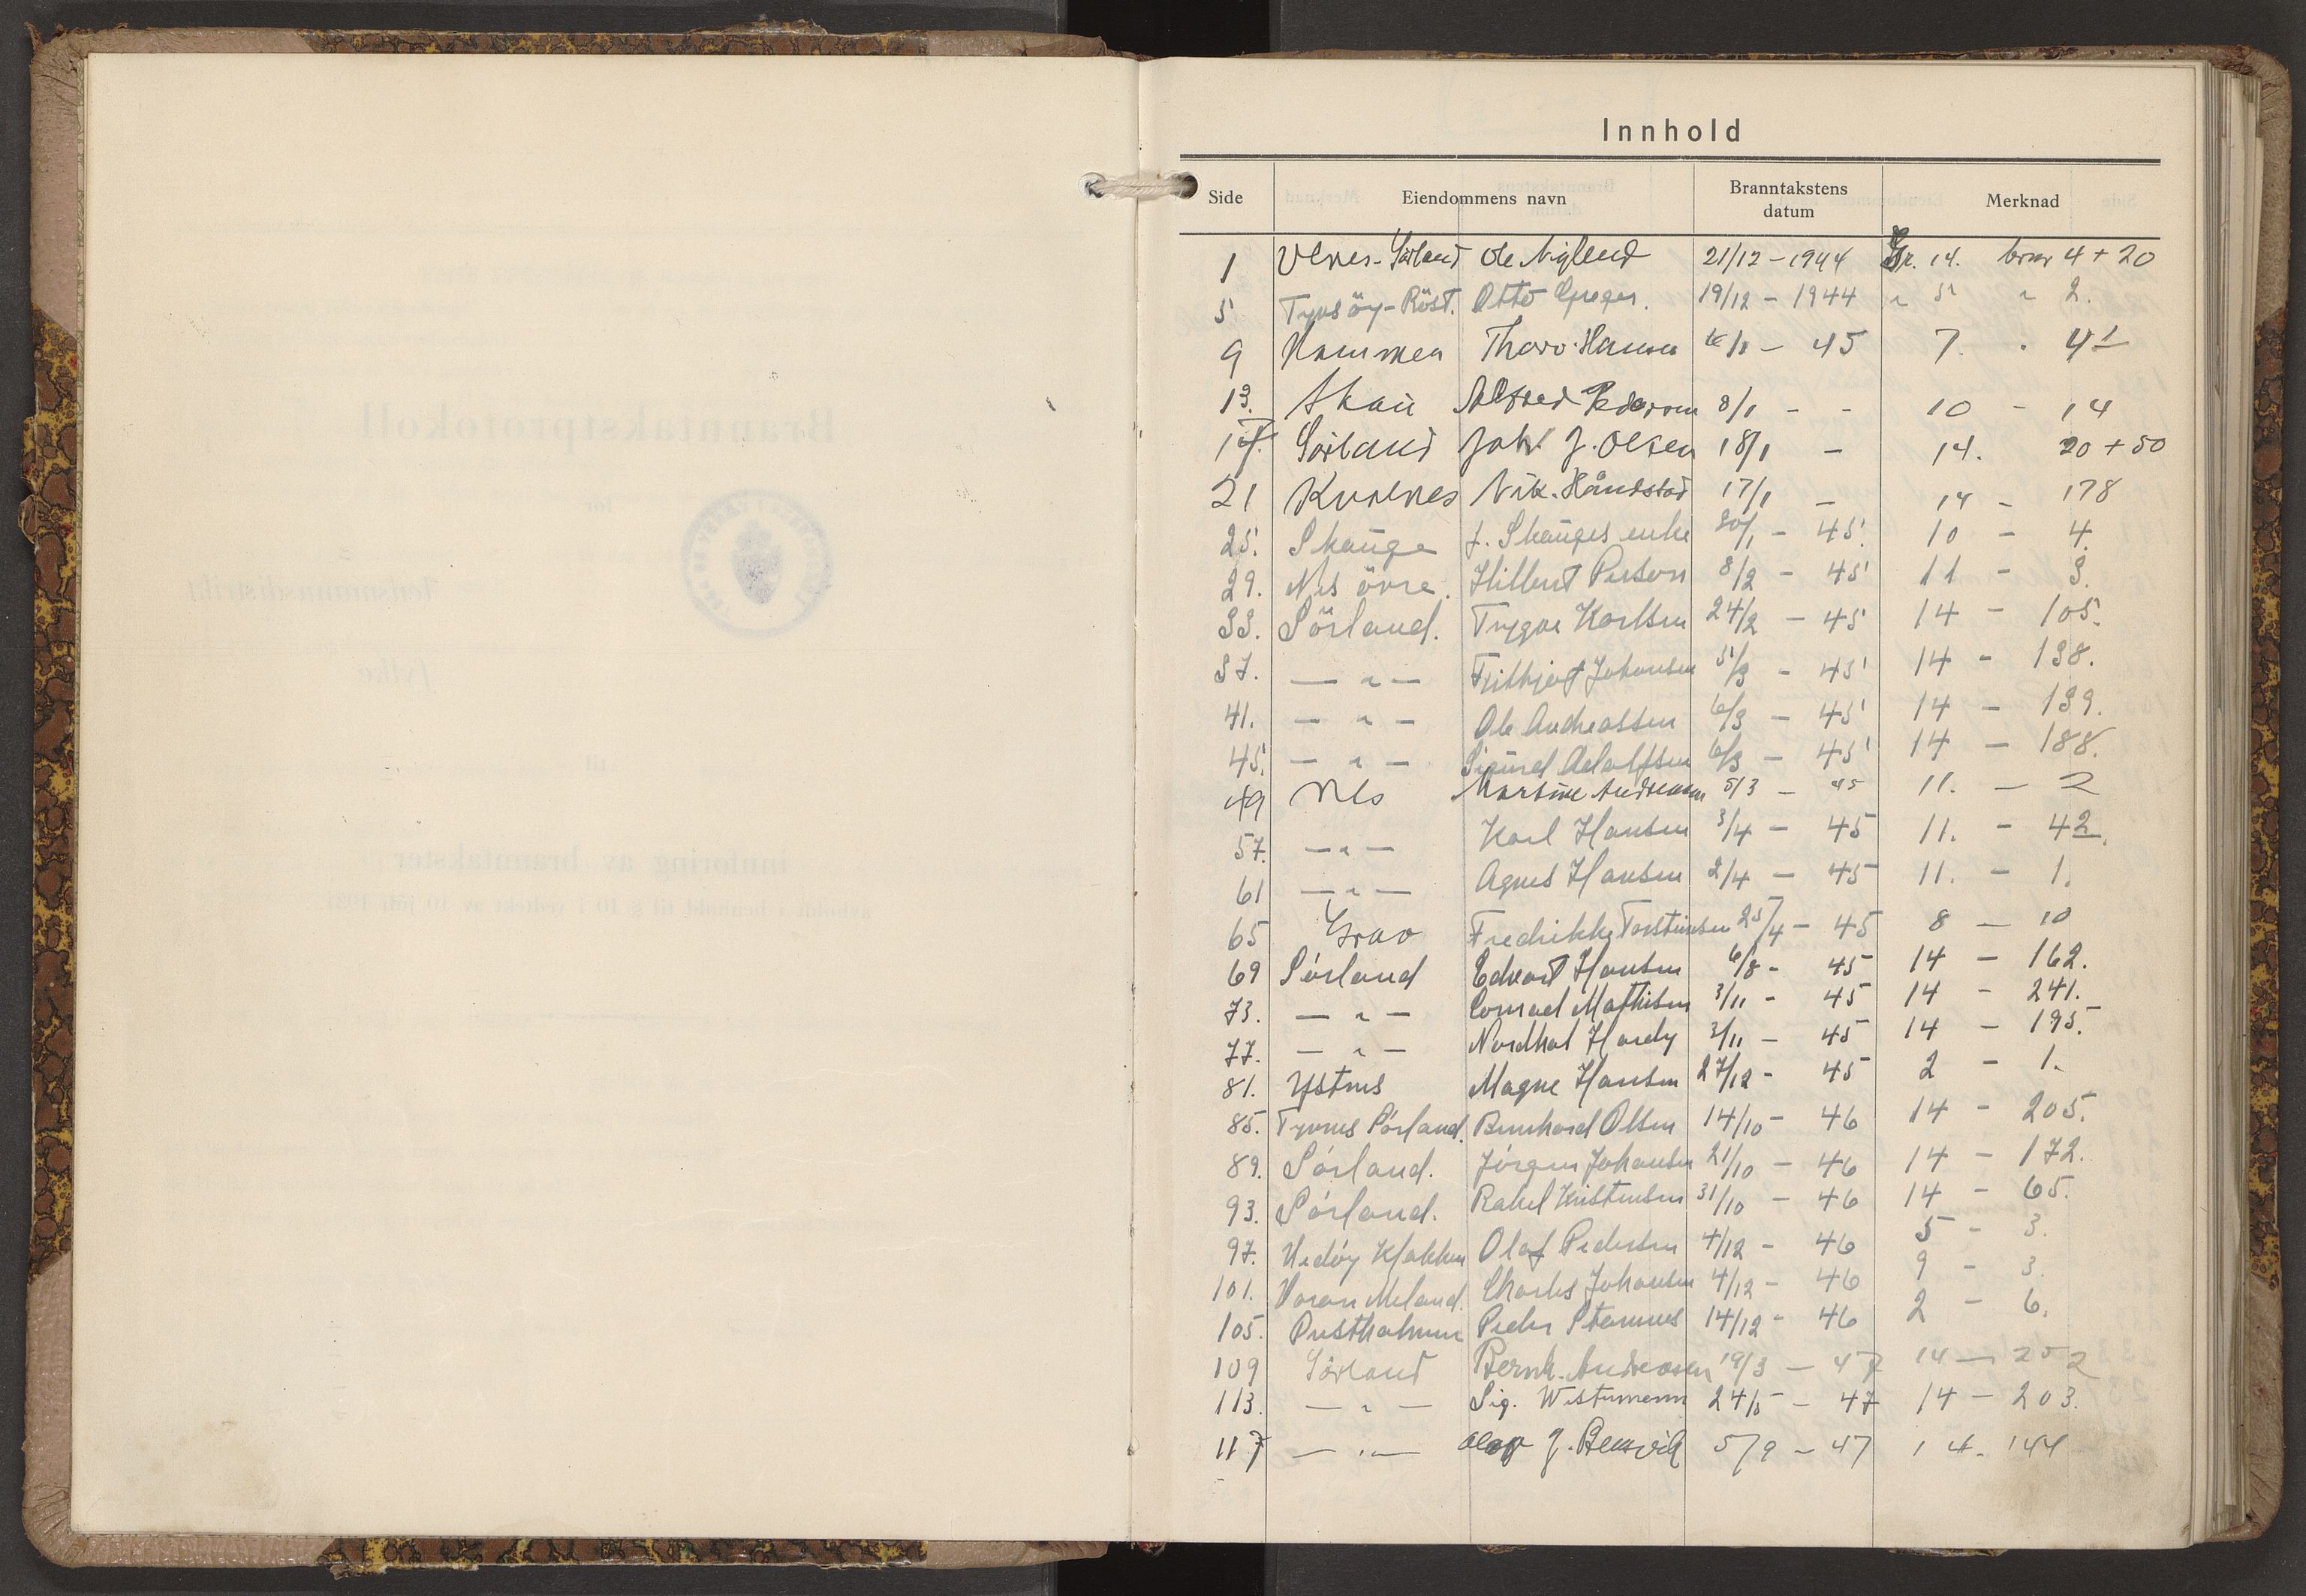 Innhold
Side Eiendommens navn Branntakstens datum Merknad
1 Sørland Ole 21/12 - 1944 Gr. 14. brnr 4 + 20
5 Tyvsöy - Röst. Otto Greger. 19/12 - 1944 " 5 " 2.
9 Hammen Thorv. Hansen - 45 7. 41
13. Skau Alfred Pedersen 8/1 - - 10 - 14
17. Sørland Joh. J. Olsen 18/1 - 14. 20 + 50
21 Kvalnes Nik. Håndstad 17/1 - 14 - 178
25. Skauge J. Skauges enke 30/1 - 45. 10 - 4.
29. Nes övre. Hilbert Person 8/2 - 45 11 - 3.
33. Sörland. Trygve Karlsen 24/2 - 45 14 - 105.
37. — " — Frithjof Johansen 5/3 - 45 14 - 138.
41. — " — Ole Andreassen 6/3 - 45 14 - 139.
45. — " — Sigurd Adolfsen 6/3 - 45 14 - 188.
49 Nes Martine Andreassen 5/3 - 45 11. - 2
57. — " — Karl Hansen 3/4 - 45 11. - 42.
61 — " — Agnes Hansen 2/4 - 45 11. - 1.
65 Grav Fredrikke Torstensen 25/4 - 45 8 - 10
69 Sórland Edvart Hansen 6/8 - 45 14 - 162.
73. — " — Conrad Mathisen 3/11 - 45 14 - 241.
77. — " — Nordhal Hardy 3/11 - 45 14 - 195.
81. Ystnes Magne Hansen 27/12 - 45 2 - 1.
85. Tyvnes Sórland. Bernhard Olsen 14/10 - 46 14 - 205.
89. Sórland. Jórgen Johansen 21/10 - 46 14 - 172.
93. Sórland. Rakel Kristensen 31/10 - 46 14 - 65.
97. Hedóy Klakken Olaf Pedersen 4/12 - 46 5 - 3.
101. Meland. Charles Johansen 4/12 - 46 9 - 3.
105. Prestholmen Peder Stamnes 14/12 - 46 2 - 6.
109 Sørland Bernh. Andreasen 19/3 - 47 14 - 252
113. — " — Sig. Westermann 24/5 - 47 14 - 203.
117 — " — Olav J. 5/9 - 47 14 - 144